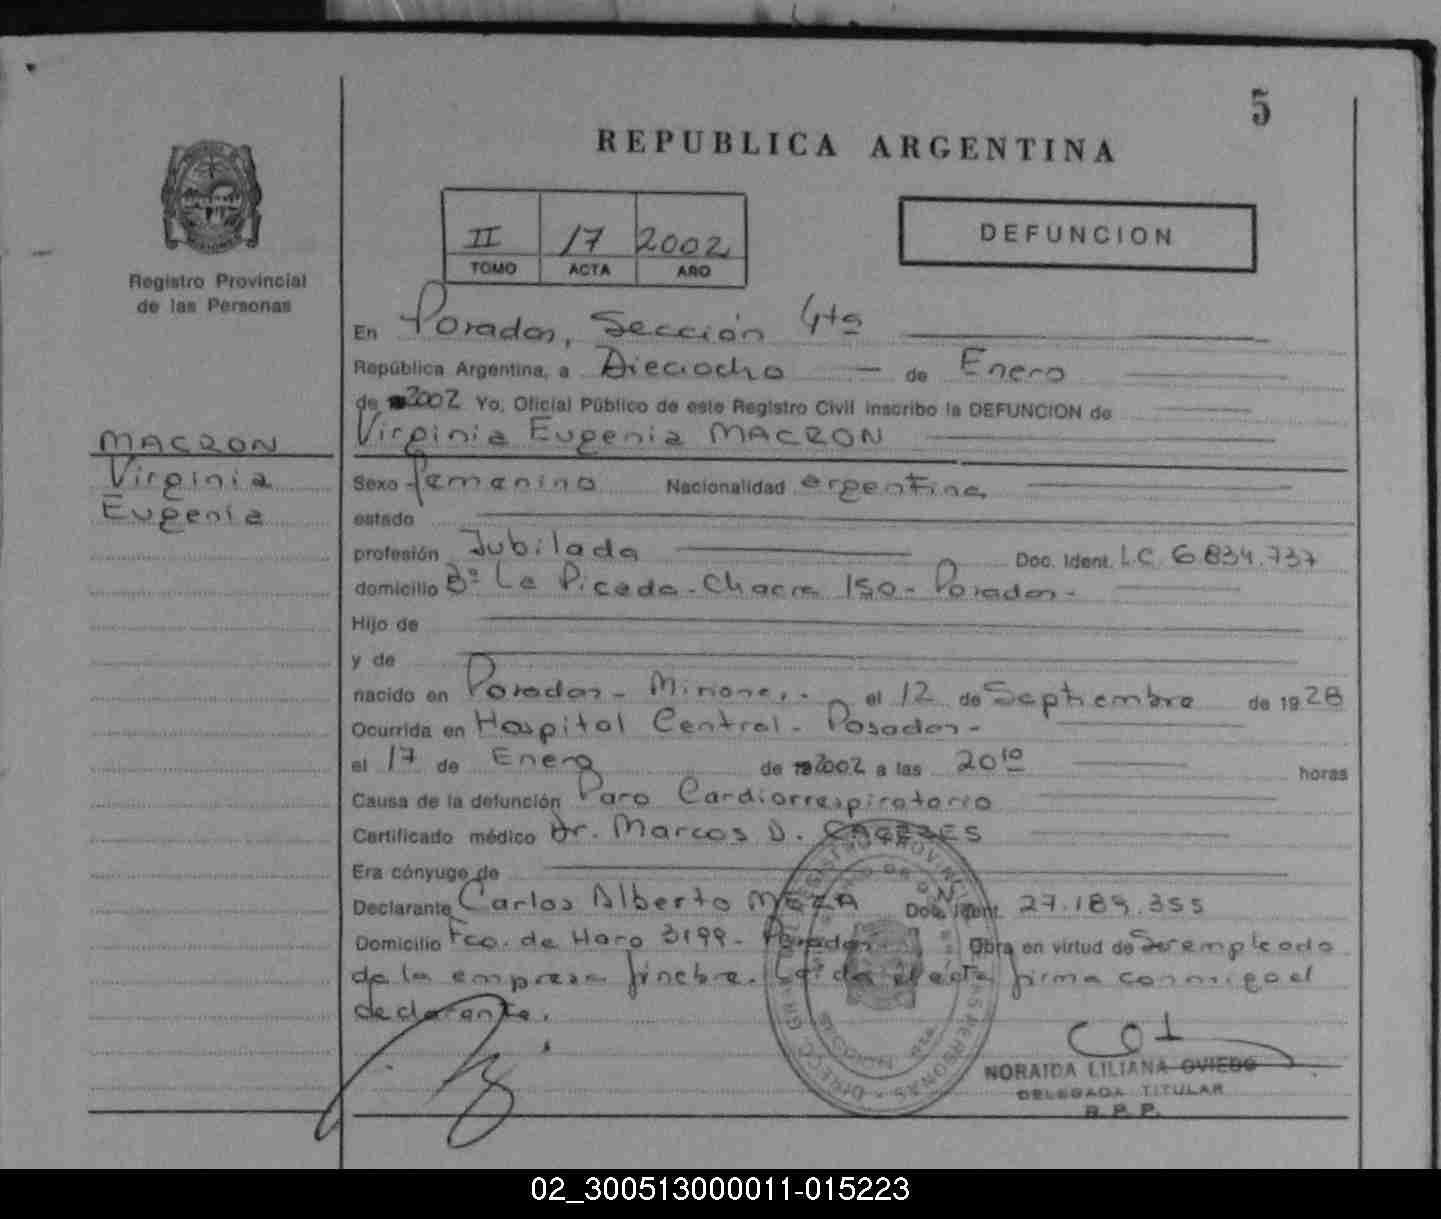 5
REPUBLICA ARGENTINA
II 17 2002
TOMO ACTA AÑO
DEFUNCION
Registro Provincial
de las Personas
MACRON
Virginia
Eugenia
En Posadas, Sección 4ta
República Argentina, a Dieciocho de Enero
de 2002 Yo, Oficial Público de este Registro Civil inscribo la DEFUNCION de
Virginia Eugenia MACRON
Sexo femenino Nacionalidad argentina
estado
profesión Jubilada Doc. Ident. L.C. 6.834.737
domicilio Bº La Picada - Chacra 150 - Posadas -
Hijo de
y de
nacido en Posadas - Misiones - el 12 de Septiembre de 1928
Ocurrida en Hospital Central - Posadas -
el 17 de Enero de 2002 a las 20 10 horas
Causa de la defunción Paro Cardiorrespiratorio
Certificado médico Dr. Marcos D. CACERES
Era cónyuge de
Declarante Carlos Alberto MEZA Doc. Ident. 27.189.355
Domicilio Fco. de Haro 3199 - Posadas Obra en virtud de Ser empleado
de la empresa fúnebre. Leída el acta firma conmigo el
declarante.
NORAIDA LILIANA OVIEDO
DELEGADA TITULAR
R. P. P.
02_300513000011-015223